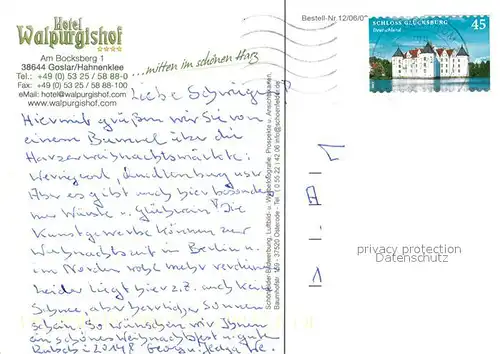 Hotel
Walpurgishof
★★★★
Am Bocksberg 1
38644 Goslar/Hahnenklee
Tel.: +49 (0) 53 25 / 58 88-0
Fax: +49 (0) 53 25 / 58 88-100
eMail: hotel@walpurgishof.com
www.walpurgishof.com
...mitten im schönen Harz
Bestell-Nr 12/06/0
SCHLOSS GLÜCKSBURG
Deutschland
45
Liebe
Hiermit grüßen wir Sie von
einem Bummel über die
Harzerweihnachtsmärkte:
Wernigerode Quedlinburg usw.
Aber es gibt auch hier besonders
nur Würste u. Glühwein! Die
Kunstgewerbe können zur
Weihnachtszeit in Berlin u.
im Norden wohl mehr verdienen
Leider liegt hier z.Z. auch kein
Schnee, aber herrlicher Sonnen
schein. So wünschen wir Ihnen
ein schönes Weihnachtsfest u. guten
Rutsch i. 2014 Georg u. Helga
Baumhofstr. 109 · 37520 Osterode · Tel. (0 55 22)
privacy protection
Datenschutz